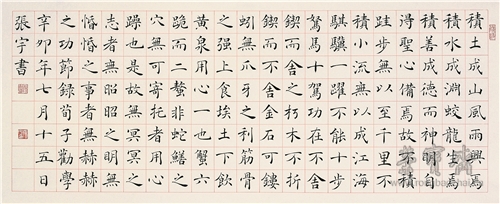 積土成山風雨興焉
積水成淵蛟龍生焉
積善成德而神明自
得聖心備焉故不積
跬步無以至千里不
積小流無以成江海
騏驥一躍不能十步
駑馬十駕功在不舍
鍥而舍之朽木不折
鍥而不舍金石可鏤
蚓無爪牙之利筋骨
之强上食埃土下飲
黃泉用心一也蟹六
跪而二螯非蛇鱔之
穴無可寄託者用心
躁也是故無冥冥之
志者無昭昭之明無
惛惛之事者無赫赫
之功節錄荀子勸學
辛卯年七月十五日
張宇書